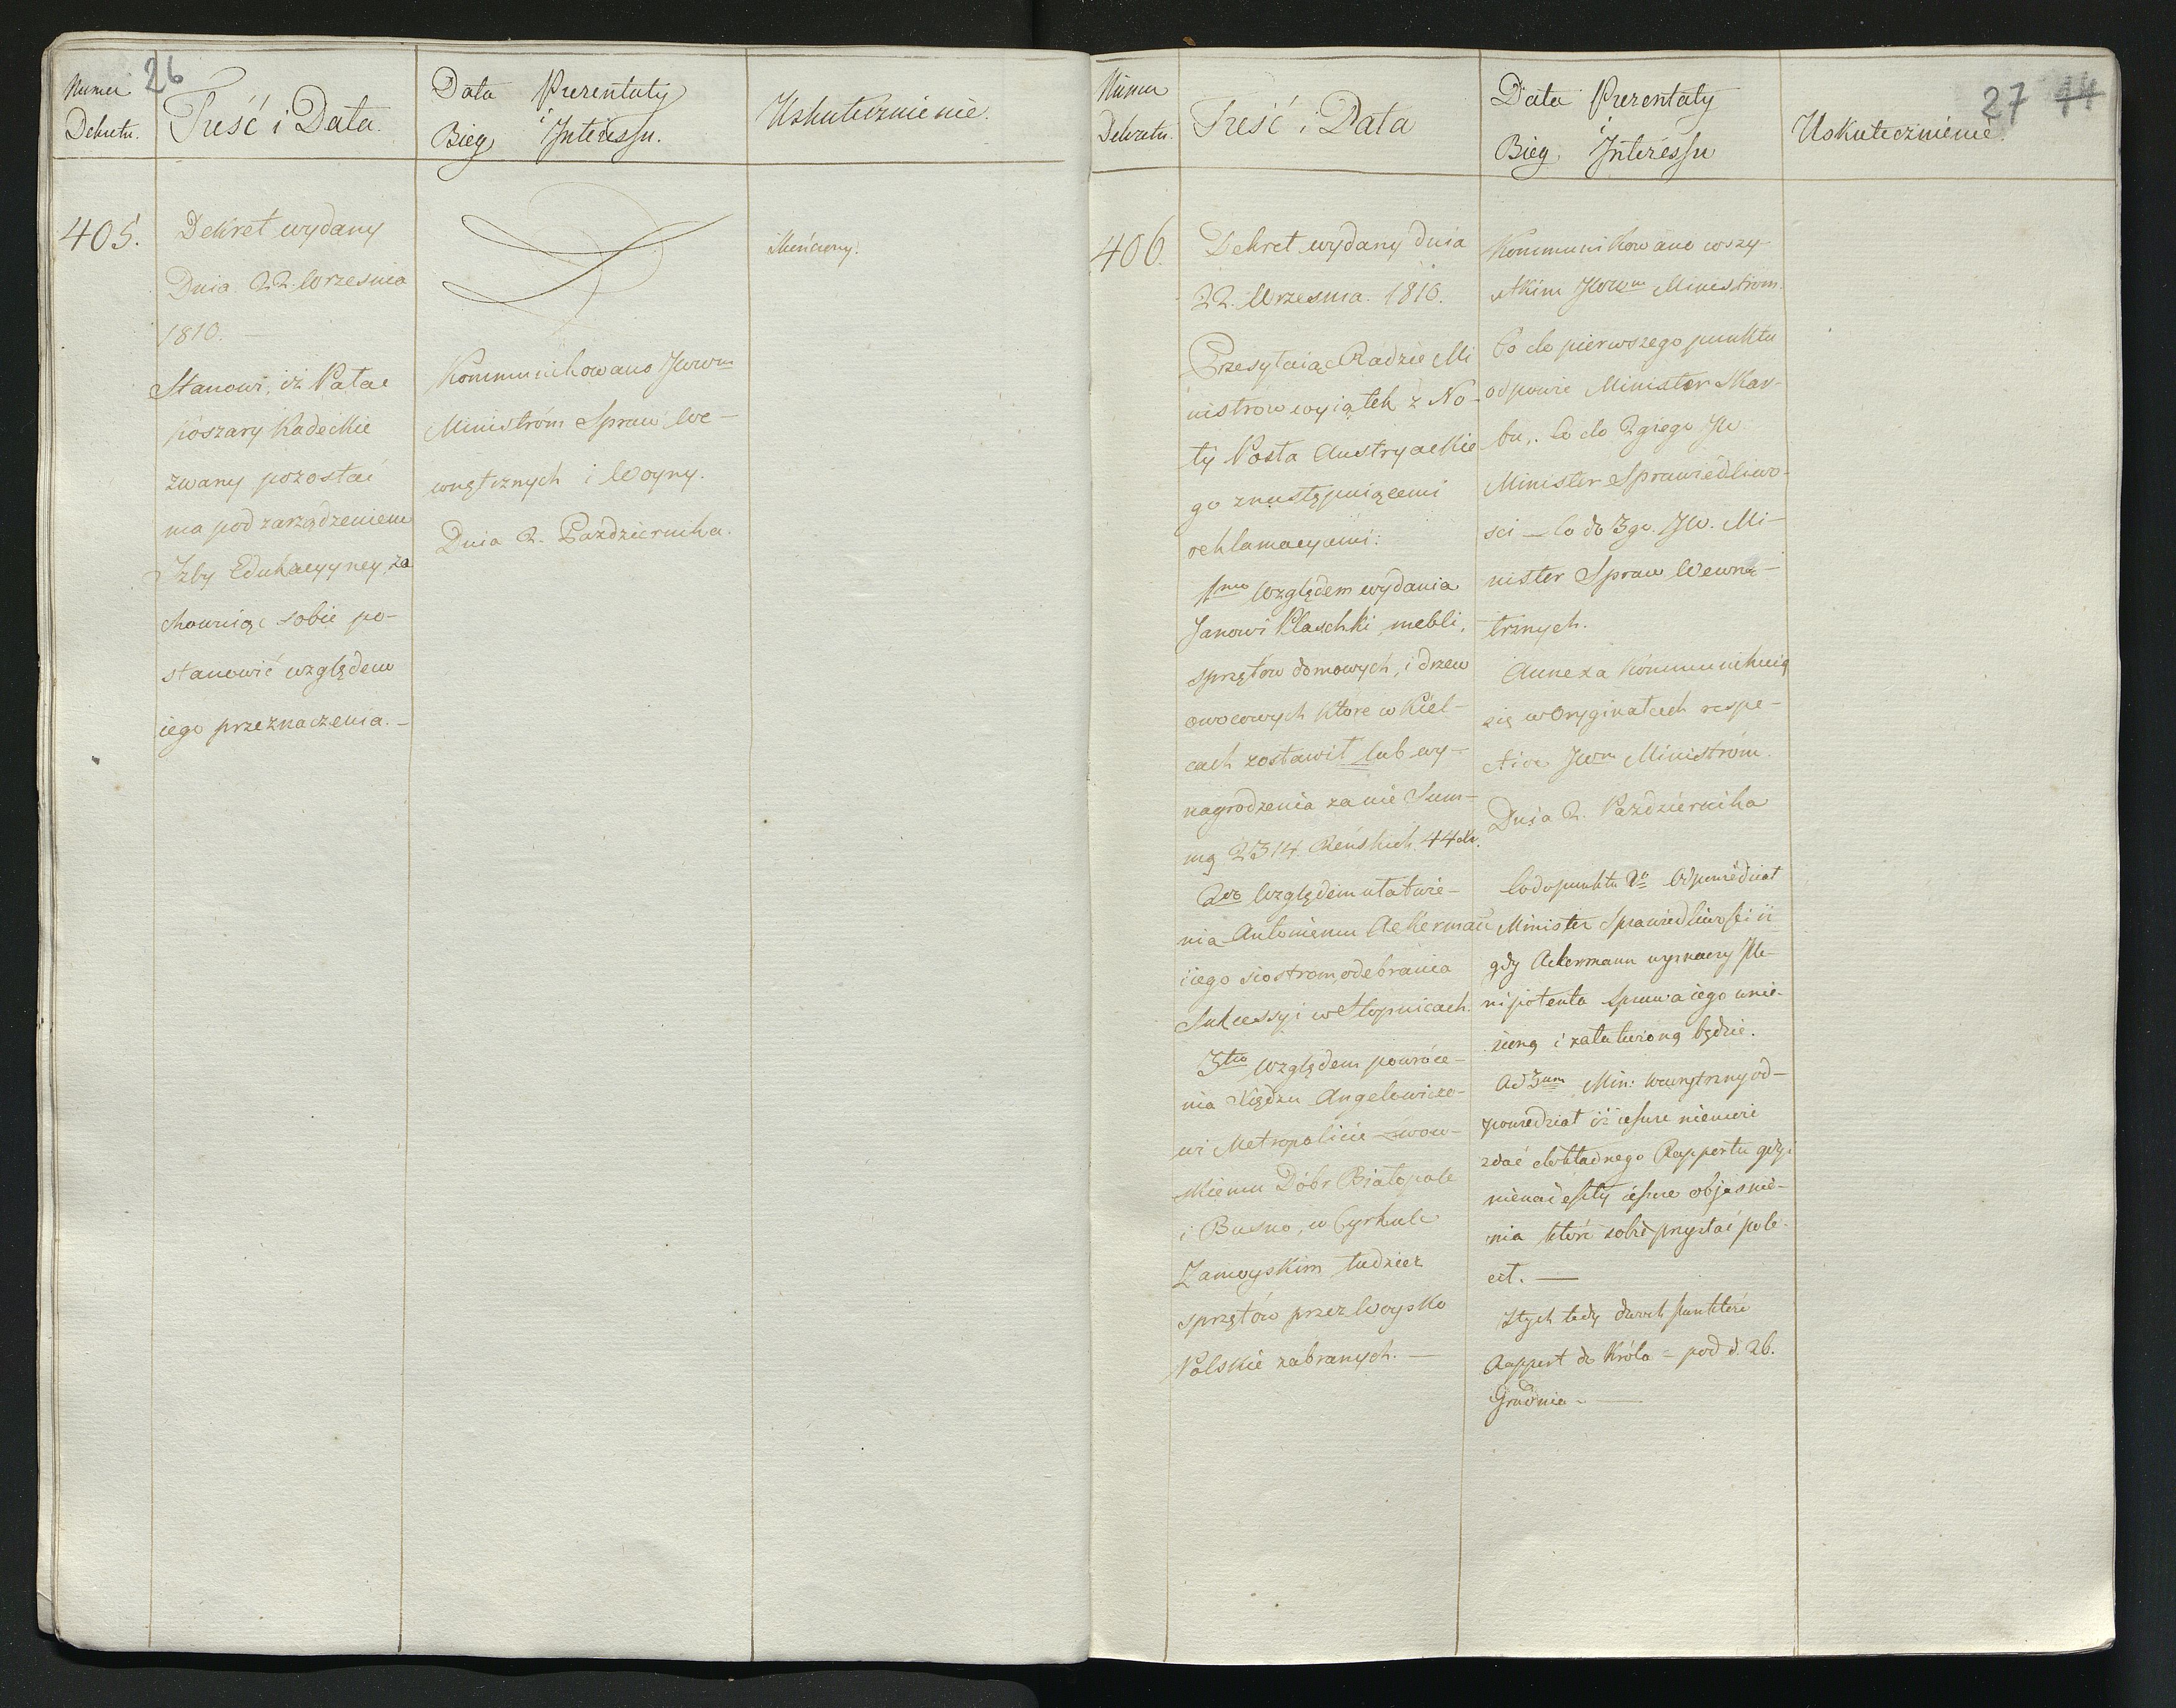 26
Numer
Dekretu.
Treść i Data.
Data Prezentaty
i
Bieg Interessu.
Uskutecznienie.
405.
Dekret wydany
Dnia 22. Września
1810. —
Stanowi, iż Pałac
koszary Kadeckie
zwany pozostać
ma pod zarządzeniem
Izby Edukacyyney, za
chowuiąc sobie po-
stanowić względem
iego przeznaczenia. —
Kommunikowano JWWm
Ministróm Spraw We-
wnętrznych i Woyny.
Dnia 2. Pazdziernika.
skończony.
27 14
Numer
Dekretu.
Treść i Data
Data Prezentaty
i
Bieg Interessu
Uskutecznienie.
406.
Dekret wydany dnia
22. Września. 1810.
Przesyłaiąc Radzie Mi
nistrow wyiątek z No-
ty Posła Austryackie
go z następuiącemi
reklamacyami:
1mo Względem wydania
Janowi Plaschki mebli,
sprzętów domowych, i drzew
owocowych które w Kiel-
cach zostawił lub wy-
nagrodzenia za nie Sum-
mą 2314. Reńskich. 44 kr.
2do Względem ułatwie-
nia Antoniemu Ackermañ
i iego siostrom, odebrania
Sukcessyi w Stopnicach.
3tio Względem powróce-
nia Xiędzu Angelowiczo-
wi Metropolicie Lwow-
skiemu Dóbr Białopole
i Busno, w Cyrkule
Zamoyskim tudzież
sprzętów przez Woysko
Polskie zabranych. —
Kommunikowano wszy-
stkim JWWm Ministrom.
Co do pierwszego punktu
odpowie Minister Skar-
bu,. Co do 2giego JW
Minister Sprawiedliwo-
sci — Co do 3go. JW. Mi-
nister Spraw Wewnę-
trznych.
Annexa kommunikuią
się w Oryginałach respe-
ctive JWm Ministróm.
Dnia 2. Pazdziernika
Co do punktu 2o Odpowiedział
Minister Sprawiedliwości iż
gdy Ackermann wyznaczy Ple-
nipotenta sprawa iego wnie-
sioną i załatwioną będzie.
Ad 3um Min: Wewnętrzny od-
powiedział iż iesze niemoże
zdać dokładnego Rapportu gdyż
nienadeszły iesze objasnie-
nia które sobie przysłać pole-
cił. —
Z tych tedy dwóch punktów
Rapport do Króla = pod d. 26.
Grudnia. —